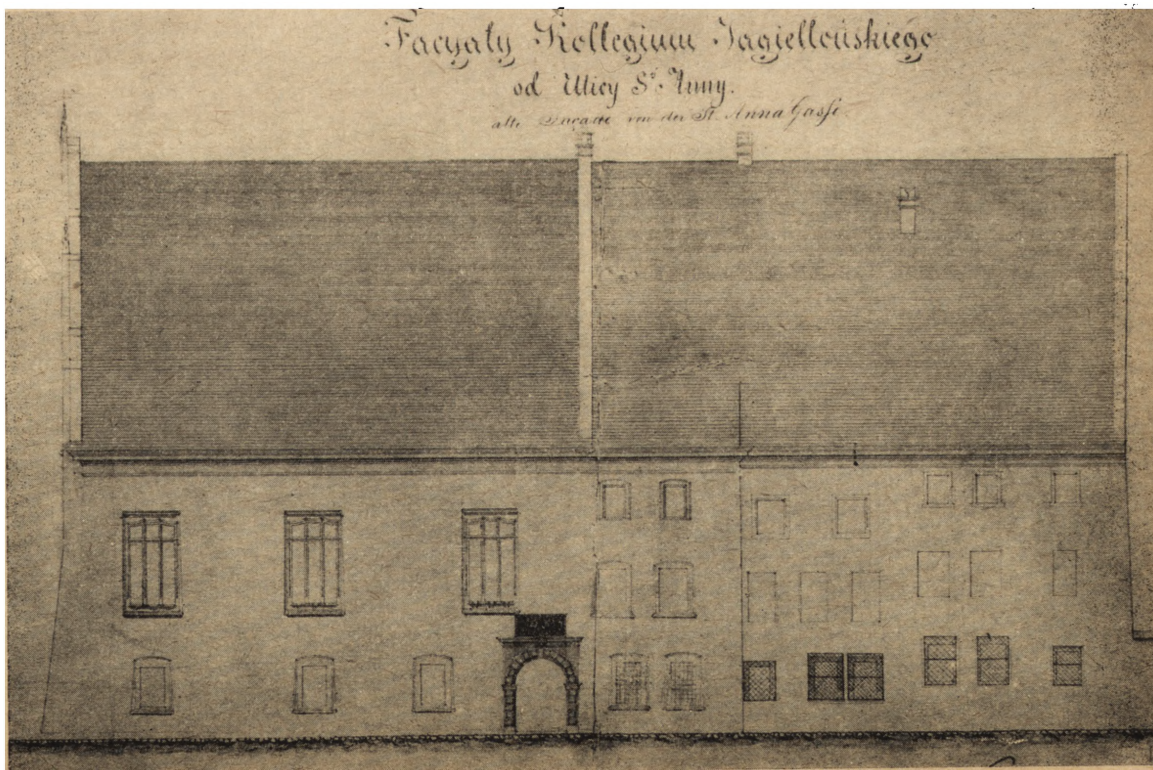 Facyaty Kollegium Jagiellońskiego
od Ulicy Sº Anny.
alte Façade von der St. Anna Gasse